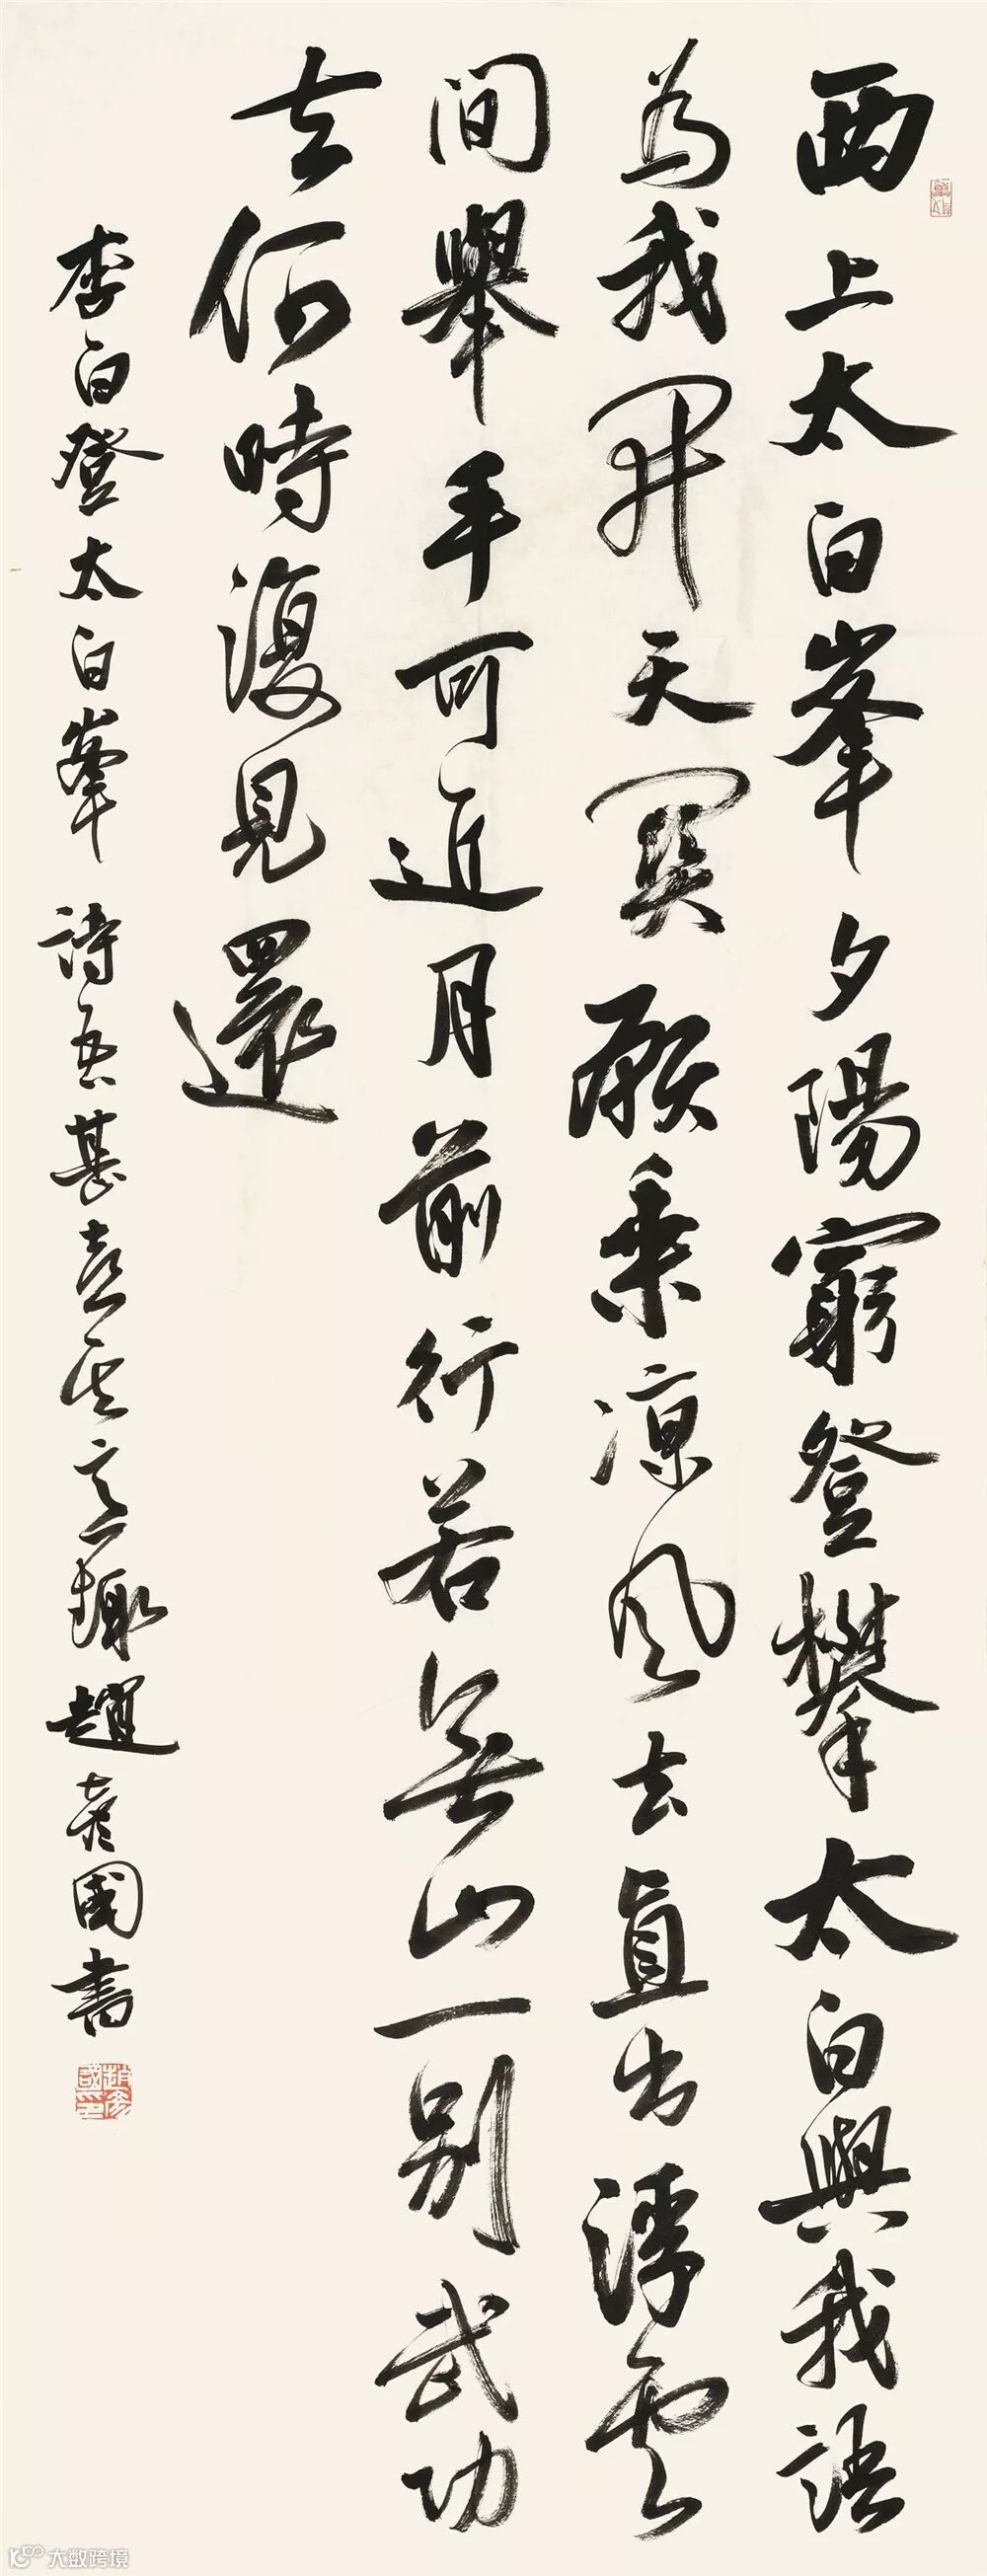 西上太白峯夕陽窮登攀太白與我語
為我開天關願乘涼風去直出浮雲
間舉手可近月前行若無山一別武功
去何時復見還
李白登太白峯詩吾甚喜其意趣趙彥國書
趙彥國印
大数跨境